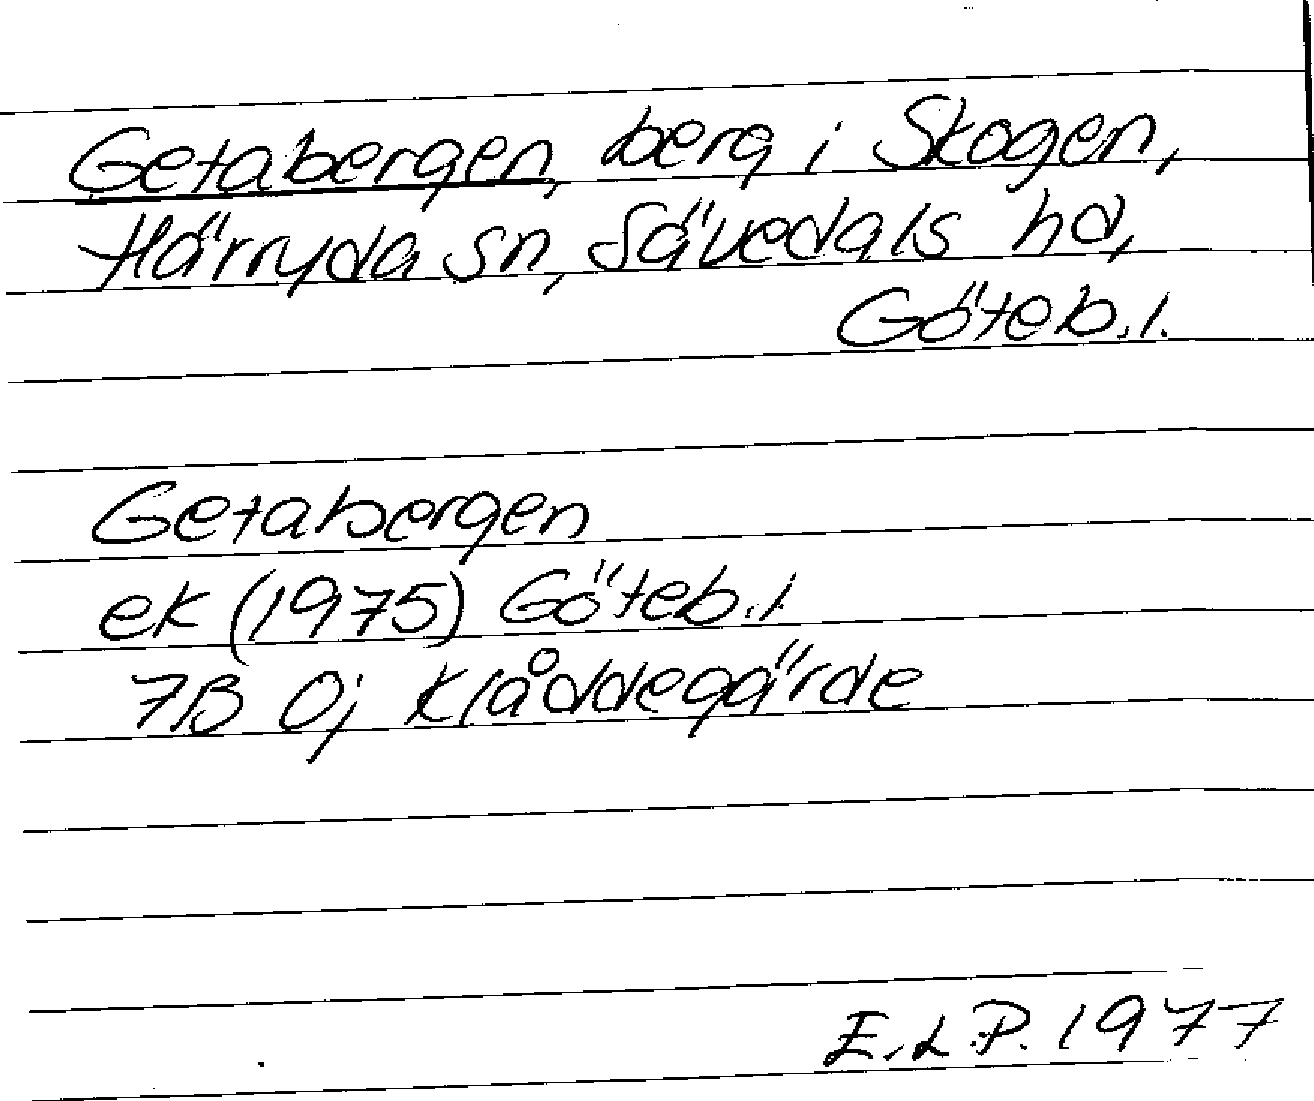 Getabergen, berg i Skogen,
Härryda sn, Sävedals hd,
Göteb.l.
Getabergen
ek (1975) Göteb.l
7B 0j Klåddegärde
E.L.P. 1977